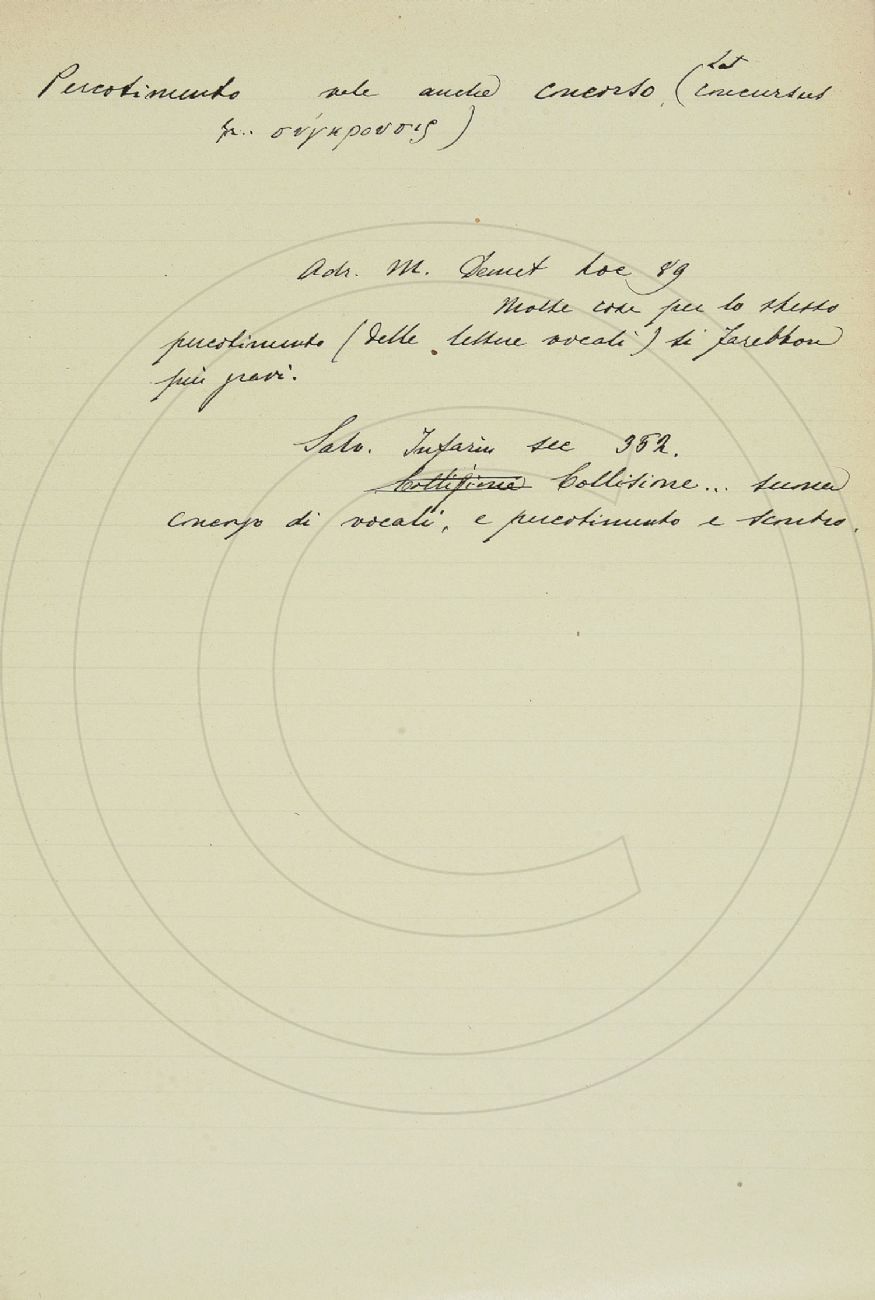 Percotimento vale anche concorso, (Lat concursus
gr.. σύγκρουσις)
Adr. M. Demet Loc 89
Molte cose per lo stesso
percotimento (delle lettere vocali) si farebbon
più gravi.
Salv. Infarin sec 352.
Collisione... suona
concorso di vocali, e percotimento e scontro.